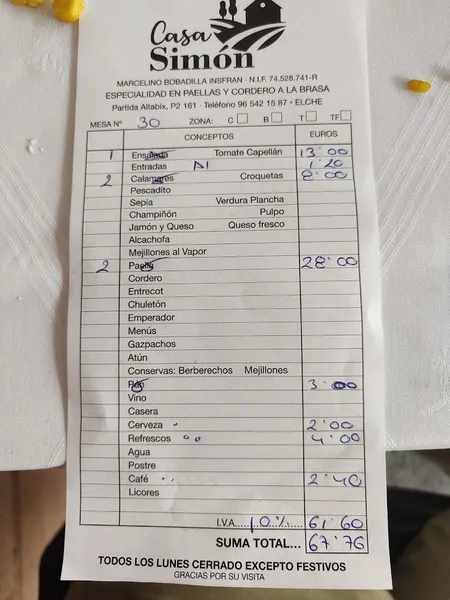 Casa
Simón
MARCELINO BOBADILLA INSFRAN - N.I.F. 74.528.741-R
ESPECIALIDAD EN PAELLAS Y CORDERO A LA BRASA
Partida Altabix, P2 161 · Teléfono 96 542 15 87 · ELCHE
MESA Nº 30 ZONA: C B T TF
CONCEPTOS EUROS
1 Ensalada Tomate Capellán 13'00
Entradas 1'20
2 Calamares Croquetas 8'00
Pescadito
Sepia Verdura Plancha
Champiñón Pulpo
Jamón y Queso Queso fresco
Alcachofa
Mejillones al Vapor
2 Paella 28'00
Cordero
Entrecot
Chuletón
Emperador
Menús
Gazpachos
Atún
Conservas: Berberechos Mejillones
Pan 3'00
Vino
Casera
Cerveza 2'00
Refrescos 4'00
Agua
Postre
Café 2'40
Licores
I.V.A. 10% 61'60
SUMA TOTAL... 67'76
TODOS LOS LUNES CERRADO EXCEPTO FESTIVOS
GRACIAS POR SU VISITA